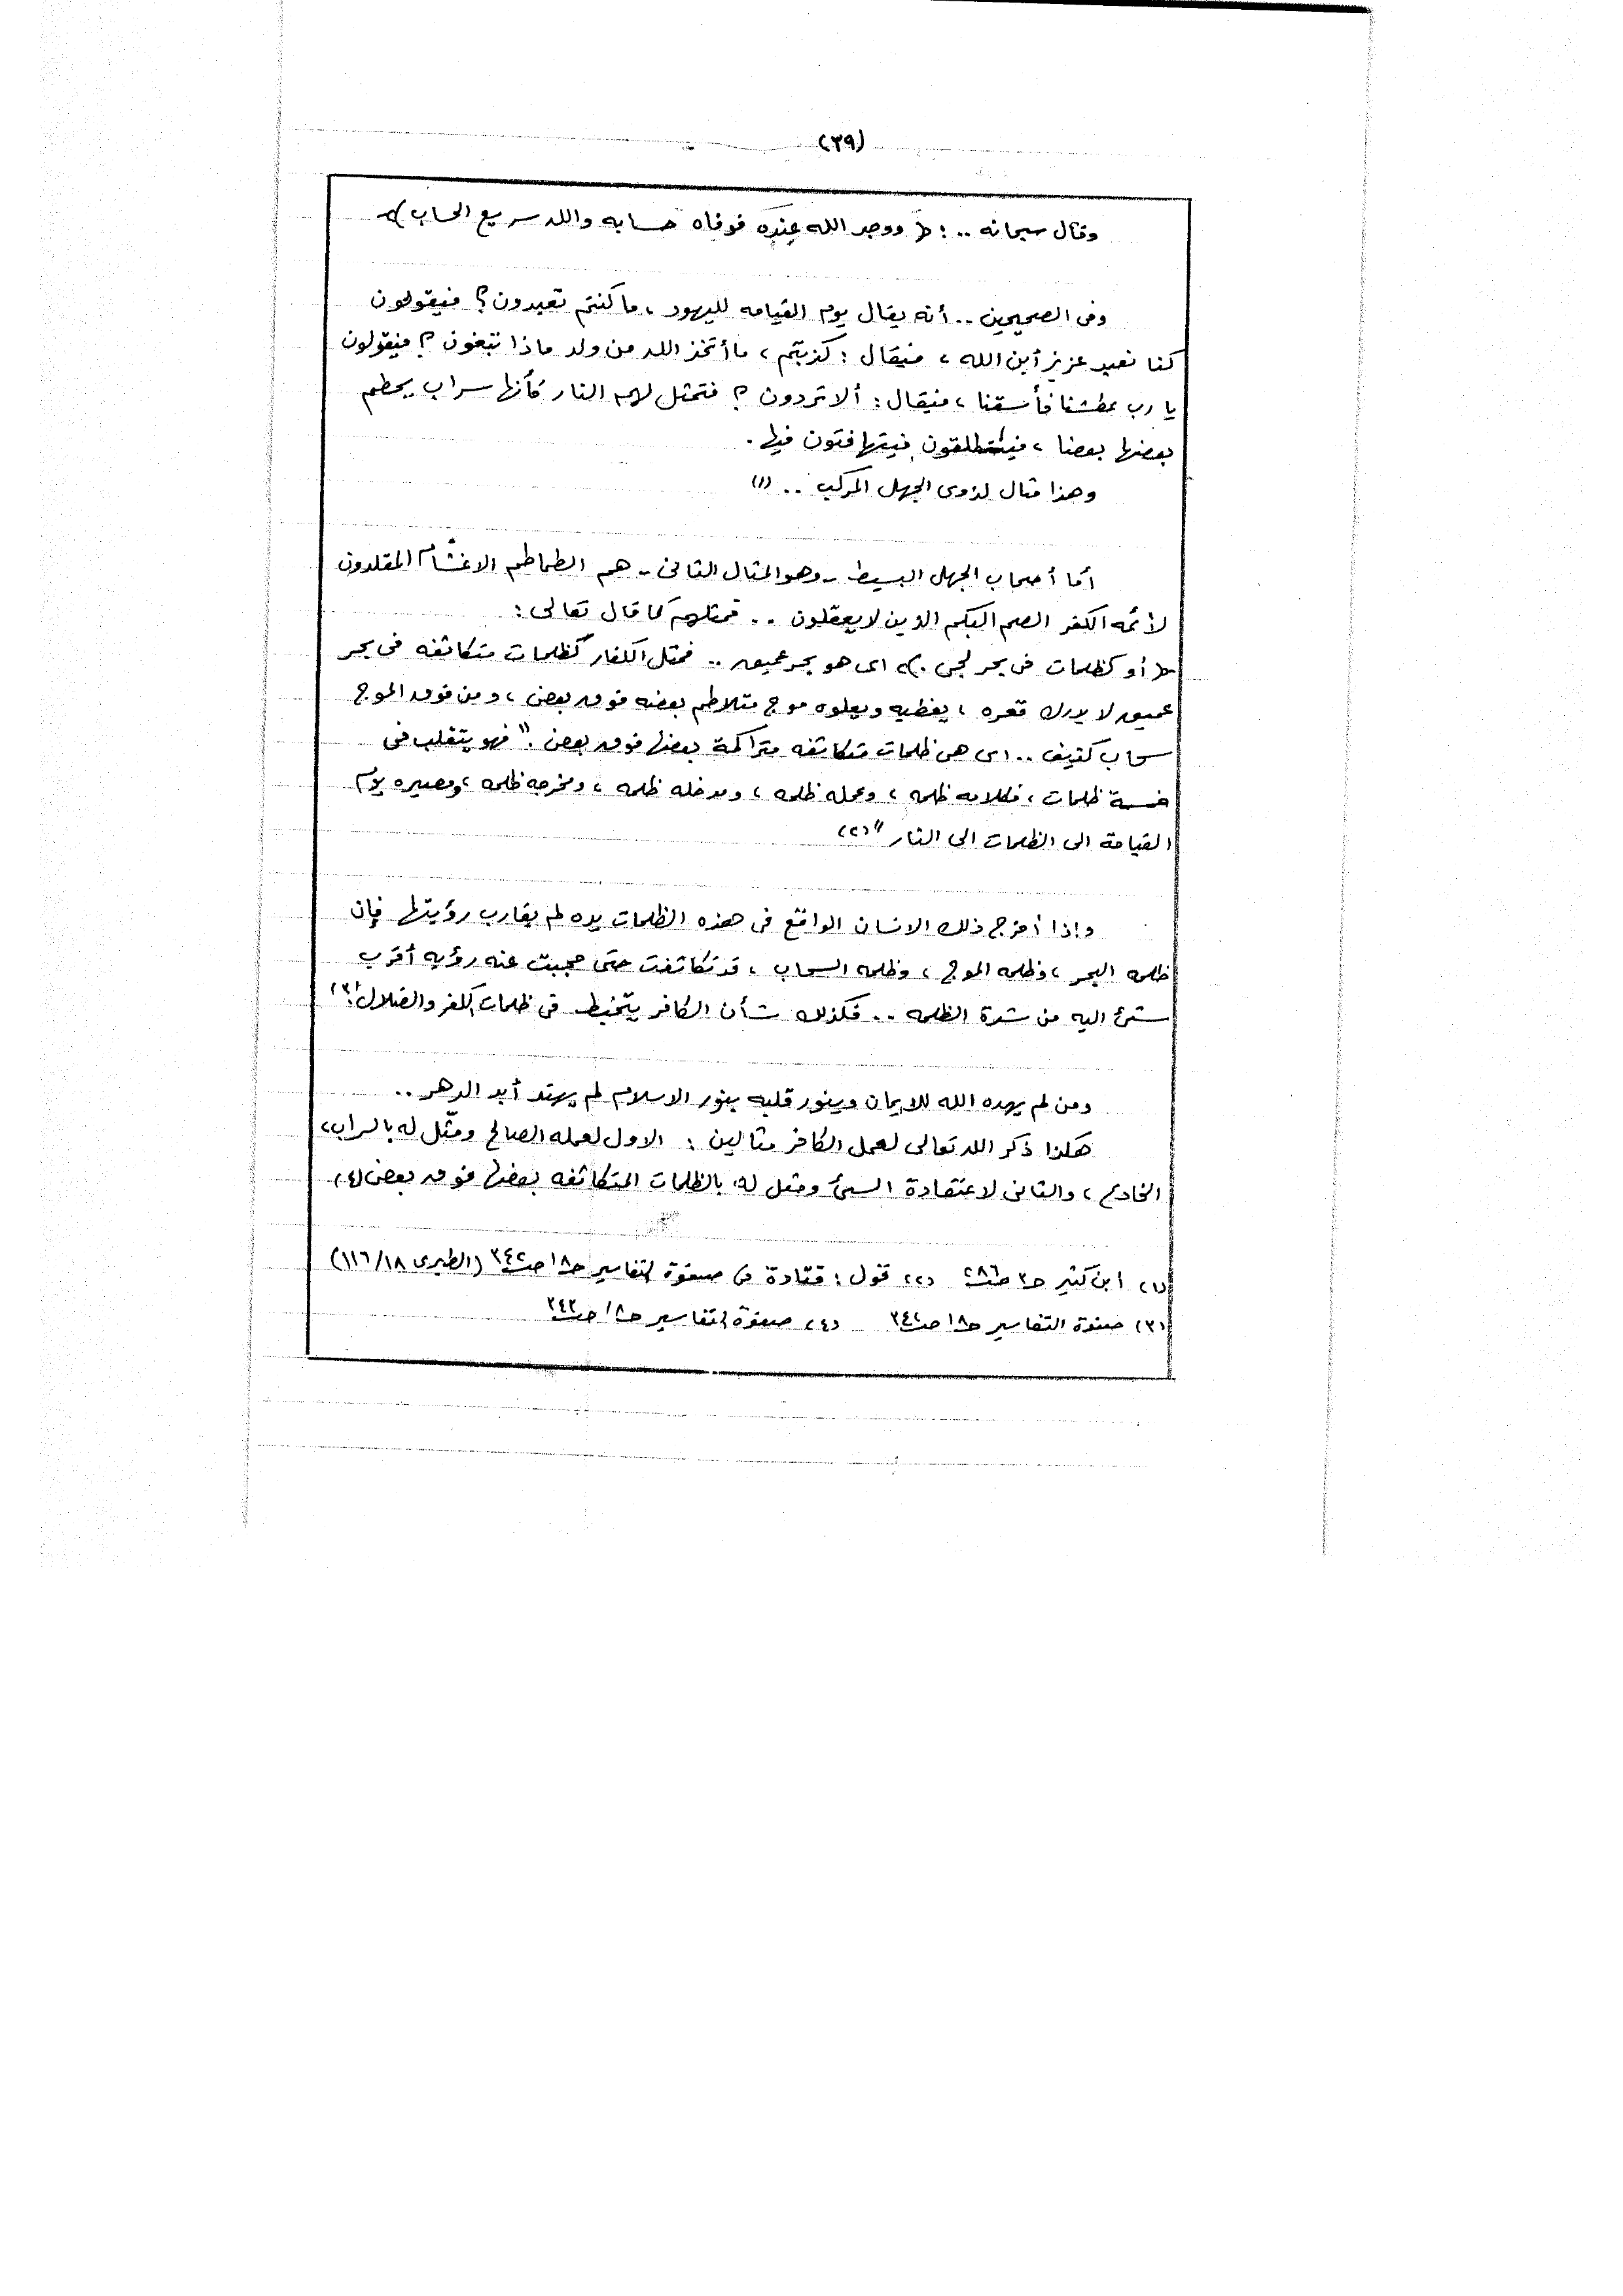 (٣٩)
وقال سبحانه .. : ﴿ ووجد الله عِندَه فوفاه حسابه والله سريع الحساب ﴾
وفى الصحيحين .. أنه يقال يوم القيامه لليهود ، ما كنتم تعبدون ؟ فيقولون
كنا نعبد عزيز أبن الله ، فيقال : كذبتم ، ما أتخذ الله من ولد ماذا تبغون ؟ فيقولون
يا رب عطشنا فأسقنا ، فيقال : ألا تردون ؟ فتمثل لهم النار كأنها سراب يحطم
بعضها بعضا ، فينطلقون فيتهافتون فيها .
وهذا مثال لذوى الجهل المركب .. (١)
أما أصحاب الجهل البسيط - وهو المثال الثانى - هم الطماطم الاغشام المقلدون
لأئمه الكفر الصم البكم الذين لا يعقلون .. فمثلهم كما قال تعالى :
﴿ أو كظلمات فى بحر لجى . ﴾ اى هو بحر عميق .. فمثل الكفار كظلمات متكاثفه فى بحر
عميق لا يدرك قعره ، يغطيه ويعلوه موج متلاطم بعضه فوق بعض ، ومن فوق الموج
سحاب كثيف .. اى هى ظلمات متكاثفه متراكمة بعضها فوق بعض . " فهو يتقلب فى
خمسة ظلمات ، فكلامه ظلمه ، وعمله ظلمه ، ومدخله ظلمه ، ومخرجه ظلمه ، ومصيره يوم
القيامة الى الظلمات الى النار " (٢)
وإذا أخرج ذلك الانسان الواقع فى هذه الظلمات يده لم يقارب رؤيتها فإن
ظلمه البحر ، وظلمه الموج ، وظلمه السحاب ، قد تكاثفت حتى حجبت عنه رؤيه أقرب
شئ اليه من شدة الظلمه .. فكذلك شأن الكافر يتخبط فى ظلمات الكفر والضلال . (٣)
ومن لم يهده الله للايمان وينور قلبه بنور الاسلام لم يهتد أبد الدهر ..
هكذا ذكر الله تعالى لعمل الكافر مثالين : الاول لعمله الصالح ومثّل له بالسراب
الخادع ، والثانى لاعتقادة السئ ومثل له بالظلمات المتكاثفه بعضها فوق بعض (٤)
(١) ابن كثير حـ٣ صـ٢٨٦ (٢) قول : قتادة فى صفوة التفاسير حـ١٨ صـ٣٤٢ (الطبرى ١٨/١١٦)
(٣) صفوة التفاسير حـ١٨ صـ٣٤٢ (٤) صفوة التفاسير حـ١٨ صـ٣٤٢